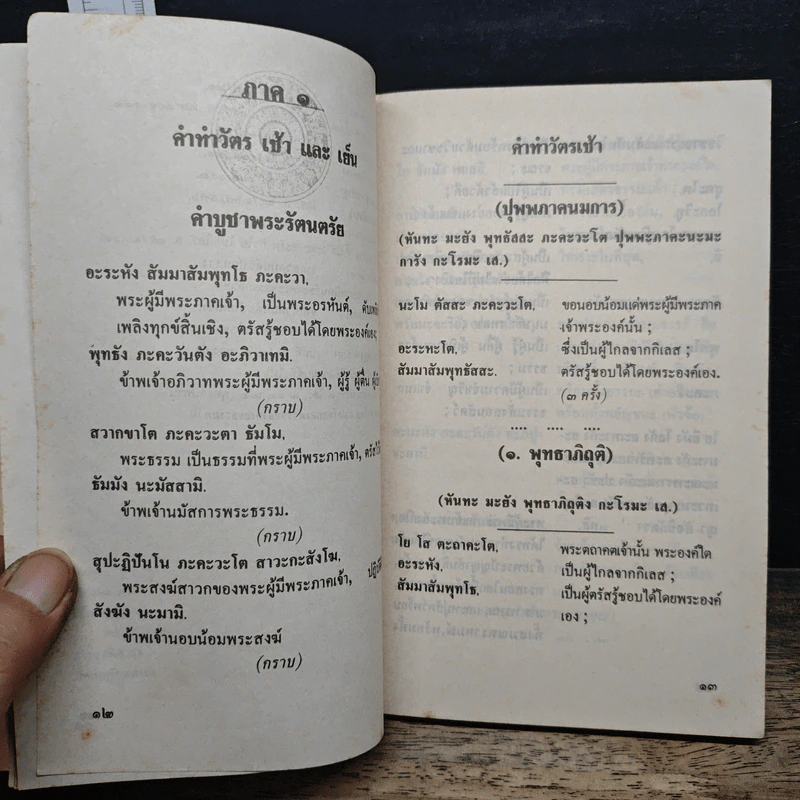 ภาค ๑
คำทำวัตร เช้า และ เย็น
คำบูชาพระรัตนตรัย
อะระหัง สัมมาสัมพุทโธ ภะคะวา,
พระผู้มีพระภาคเจ้า, เป็นพระอรหันต์,
เพลิงทุกข์สิ้นเชิง, ตรัสรู้ชอบได้โดยพระองค์เอง;
พุทธัง ภะคะวันตัง อะภิวาเทมิ.
ข้าพเจ้าอภิวาทพระผู้มีพระภาคเจ้า, ผู้รู้ ผู้ตื่น
(กราบ)
สวากขาโต ภะคะวะตา ธัมโม,
พระธรรม เป็นธรรมที่พระผู้มีพระภาคเจ้า,
ธัมมัง นะมัสสามิ.
ข้าพเจ้านมัสการพระธรรม.
(กราบ)
สุปะฏิปันโน ภะคะวะโต สาวะกะสังโฆ,
พระสงฆ์สาวกของพระผู้มีพระภาคเจ้า,
สังฆัง นะมามิ.
ข้าพเจ้านอบน้อมพระสงฆ์
(กราบ)
๑๒
คำทำวัตรเช้า
(ปุพพภาคนมการ)
(หันทะ มะยัง พุทธัสสะ ภะคะวะโต ปุพพะภาคะนะมะ
การัง กะโรมะ เส.)
นะโม ตัสสะ ภะคะวะโต, ขอนอบน้อมแด่พระผู้มีพระภาค
เจ้าพระองค์นั้น ;
อะระหะโต, ซึ่งเป็นผู้ไกลจากกิเลส ;
สัมมาสัมพุทธัสสะ. ตรัสรู้ชอบได้โดยพระองค์เอง.
(๓ ครั้ง)
.... .... ....
(๑. พุทธาภิถุติ)
(หันทะ มะยัง พุทธาภิถุติง กะโรมะ เส.)
โย โส ตะถาคะโต, พระตถาคตเจ้านั้น พระองค์ใด
อะระหัง, เป็นผู้ไกลจากกิเลส ;
สัมมาสัมพุทโธ, เป็นผู้ตรัสรู้ชอบได้โดยพระองค์
เอง ;
๑๓